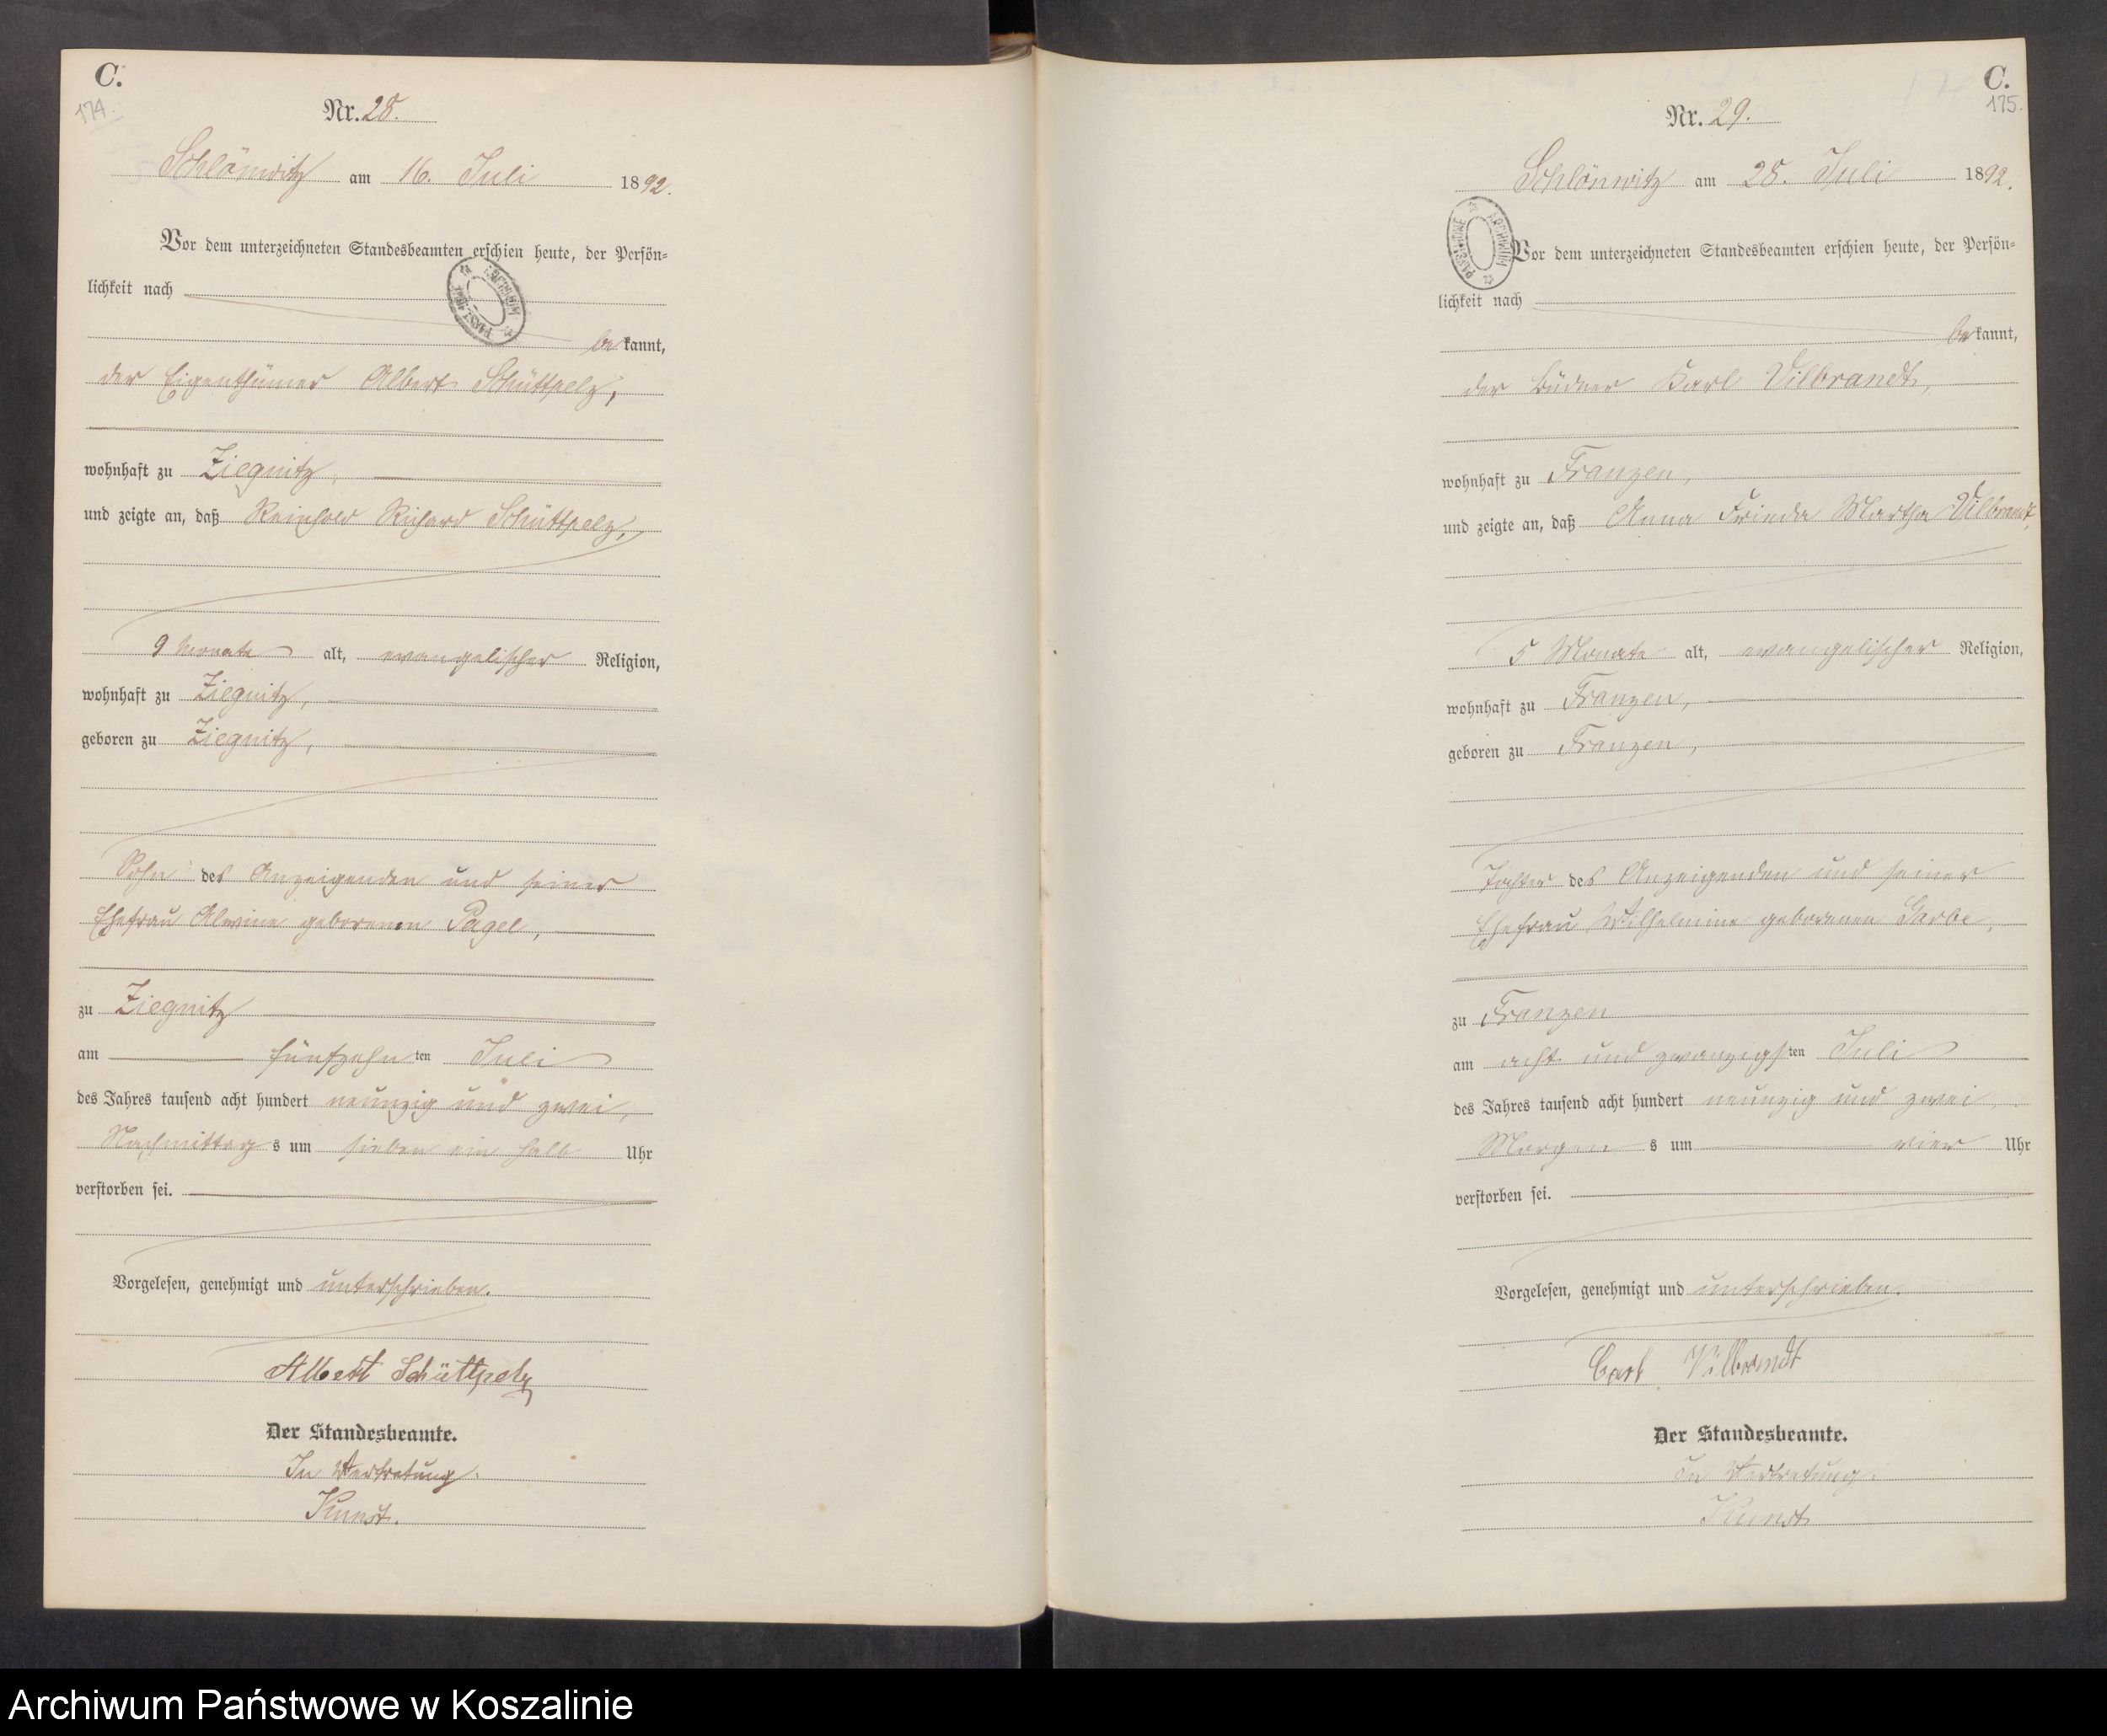 C.
174.
Nr. 28.
Schlönwitz am 16. Juli 1892.
Vor dem unterzeichneten Standesbeamten erschien heute, der Persön-
lichkeit nach
bekannt,
der Eigenthümer Albert Schüttpelz,
wohnhaft zu Ziegnitz,
und zeigte an, daß Reinhold Richard Schüttpelz,
9 Monate alt, evangelischer Religion,
wohnhaft zu Ziegnitz,
geboren zu Ziegnitz,
Sohn des Anzeigenden und seiner
Ehefrau Alwine geborenen Pagel,
zu Ziegnitz
am fünfzehnten Juli
des Jahres tausend acht hundert neunzig und zwei,
Nachmittags um sieben ein halb Uhr
verstorben sei.
Vorgelesen, genehmigt und unterschrieben.
Albert Schüttpelz
Der Standesbeamte.
In Vertretung.
Kunst.
C.
175.
Nr. 29.
Schlönwitz am 28. Juli 1892.
ARCHIWUM PAŃSTWOWE
Vor dem unterzeichneten Standesbeamten erschien heute, der Persön-
lichkeit nach
bekannt,
der Büdner Karl Vilbrandt,
wohnhaft zu Franzen,
und zeigte an, daß Anna Frieda Martha Vilbrandt,
5 Monate alt, evangelischer Religion,
wohnhaft zu Franzen,
geboren zu Franzen,
Tochter des Anzeigenden und seiner
Ehefrau Wilhelmine geborenen Garbe,
zu Franzen
am acht und zwanzigsten Juli
des Jahres tausend acht hundert neunzig und zwei
Morgens um vier Uhr
verstorben sei.
Vorgelesen, genehmigt und unterschrieben.
Carl Vilbrandt
Der Standesbeamte.
In Vertretung.
Kunst
Archiwum Państwowe w Koszalinie